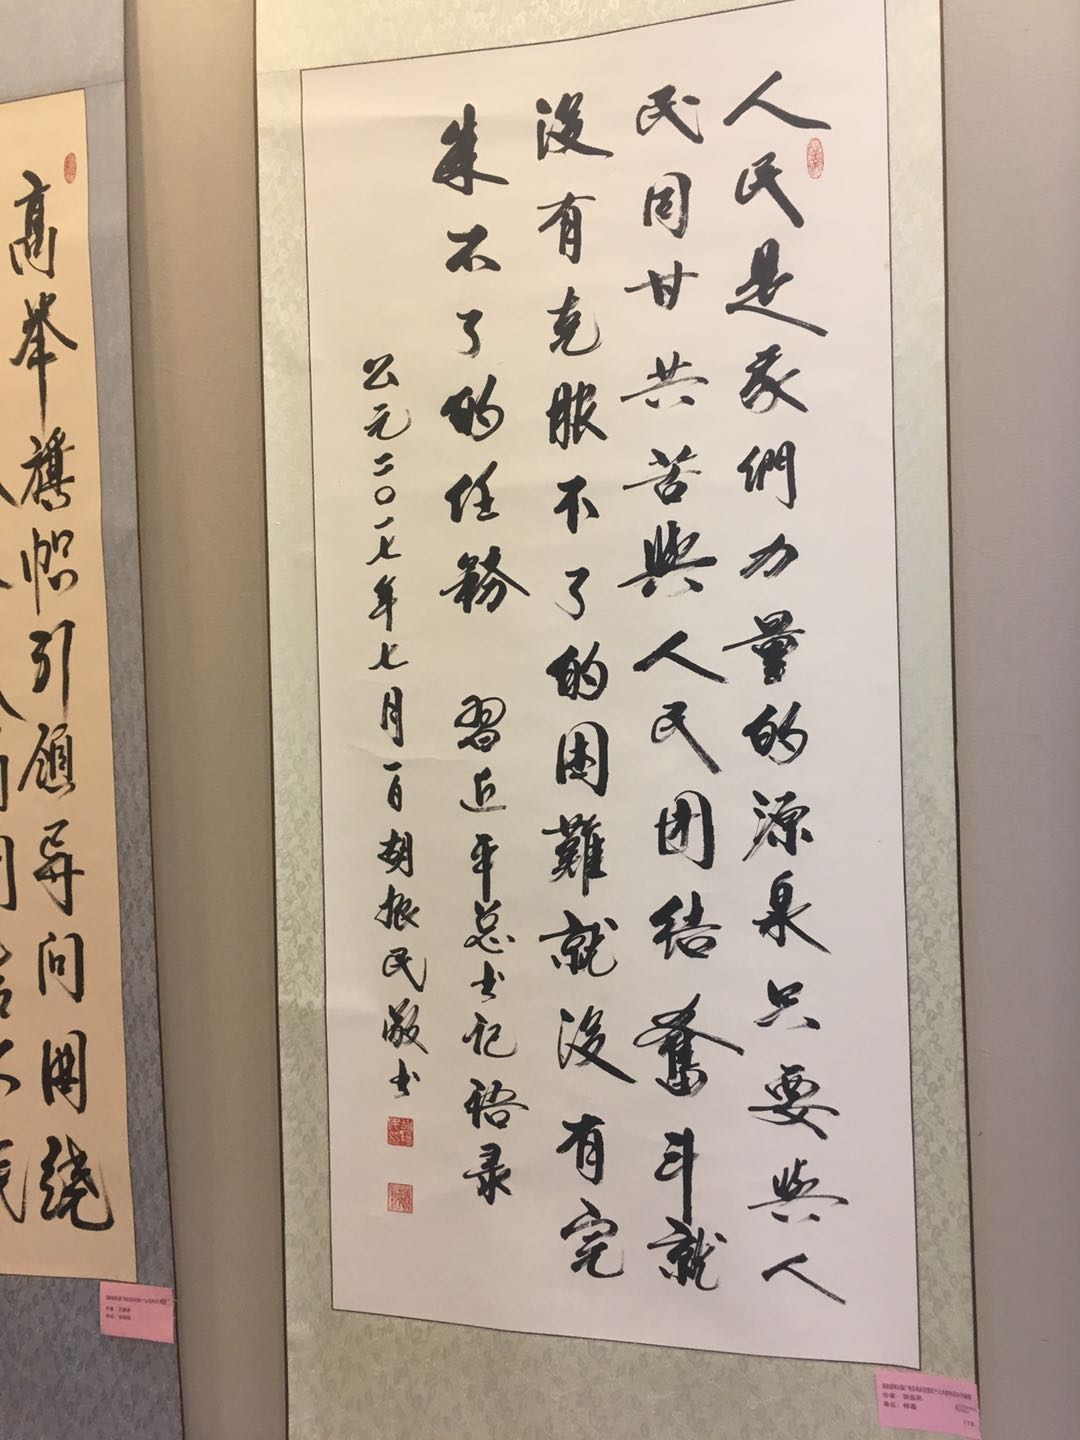 人民是我們力量的源泉只要與人
民同甘共苦與人民团结奮斗就
沒有克服不了的困難就沒有完
成不了的任務 習近平总书记语录
公元二〇一七年七月一日胡振民敬书
高举旗帜引領导向围绕
作者：胡振民
单位：特邀